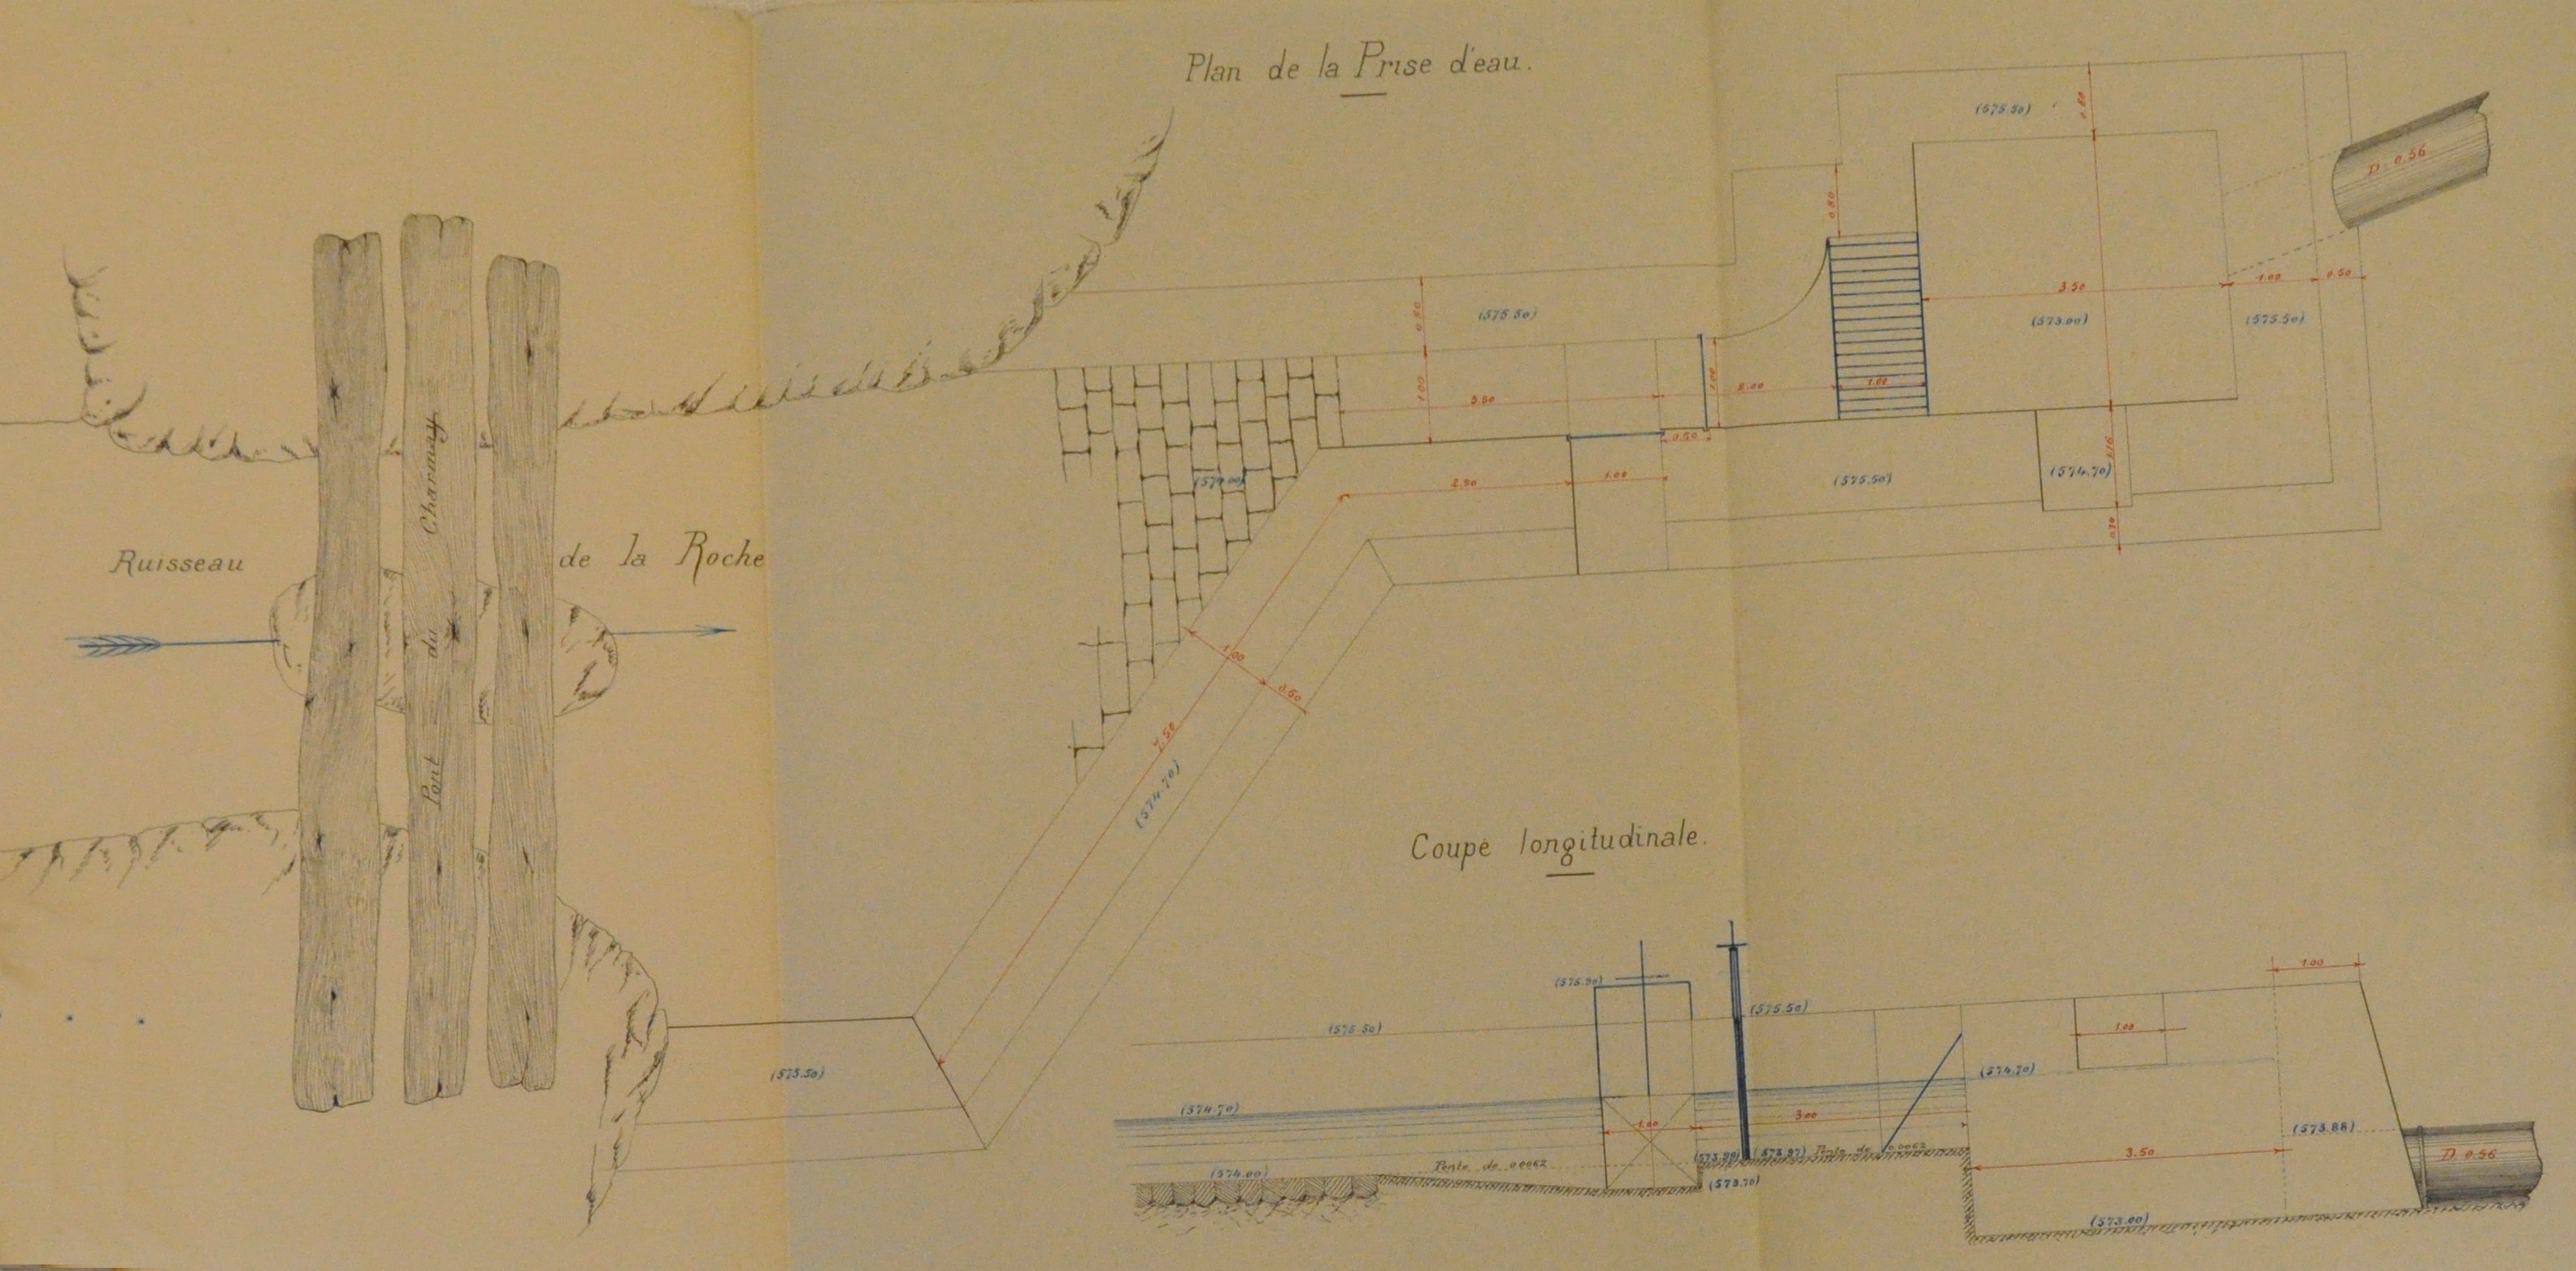 Plan de la Prise d'eau.
(575.50)
0.80
D. 0.56
0.80
3.50
1.00
0.50
(575.50)
0.80
(573.00)
(575.50)
1.00
3.50
1.00
2.00
1.00
0.50
(574.00)
2.50
1.00
(575.50)
(574.70)
1.16
0.30
Ruisseau
de la Roche
Pont du Charmay
1.00
0.50
7.50
(574.70)
(575.50)
Coupe longitudinale.
1.00
(575.90)
(575.50)
(575.50)
1.00
(574.70)
(574.70)
1.00
3.00
(573.88)
(574.00)
Pente de 0.0062
(573.90)
(573.87)
Pente de 0.0062
(573.70)
3.50
D. 0.56
(573.00)